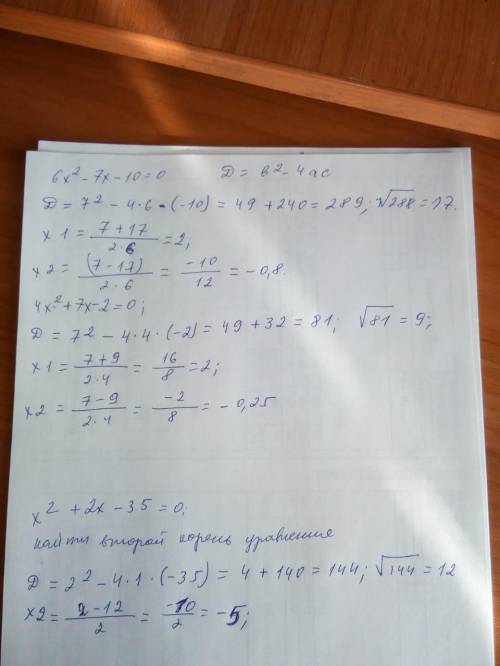 6x² - 7x - 10 = 0 D = в² - 4ac
D = 7² - 4·6·(-10) = 49 + 240 = 289; √288 = 17.
x1 = (7 + 17)/(2·6) = 2;
x2 = (7 - 17)/(2·6) = -10/12 = -0,8.
4x² + 7x - 2 = 0;
D = 7² - 4·4·(-2) = 49 + 32 = 81; √81 = 9;
x1 = (7 + 9)/(2·4) = 16/8 = 2;
x2 = (7 - 9)/(2·4) = -2/8 = -0,25
x² + 2x - 35 = 0;
найти второй корень уравнения
D = 2² - 4·1·(-35) = 4 + 140 = 144; √144 = 12
x2 = (2 - 12)/2 = -10/2 = -5;